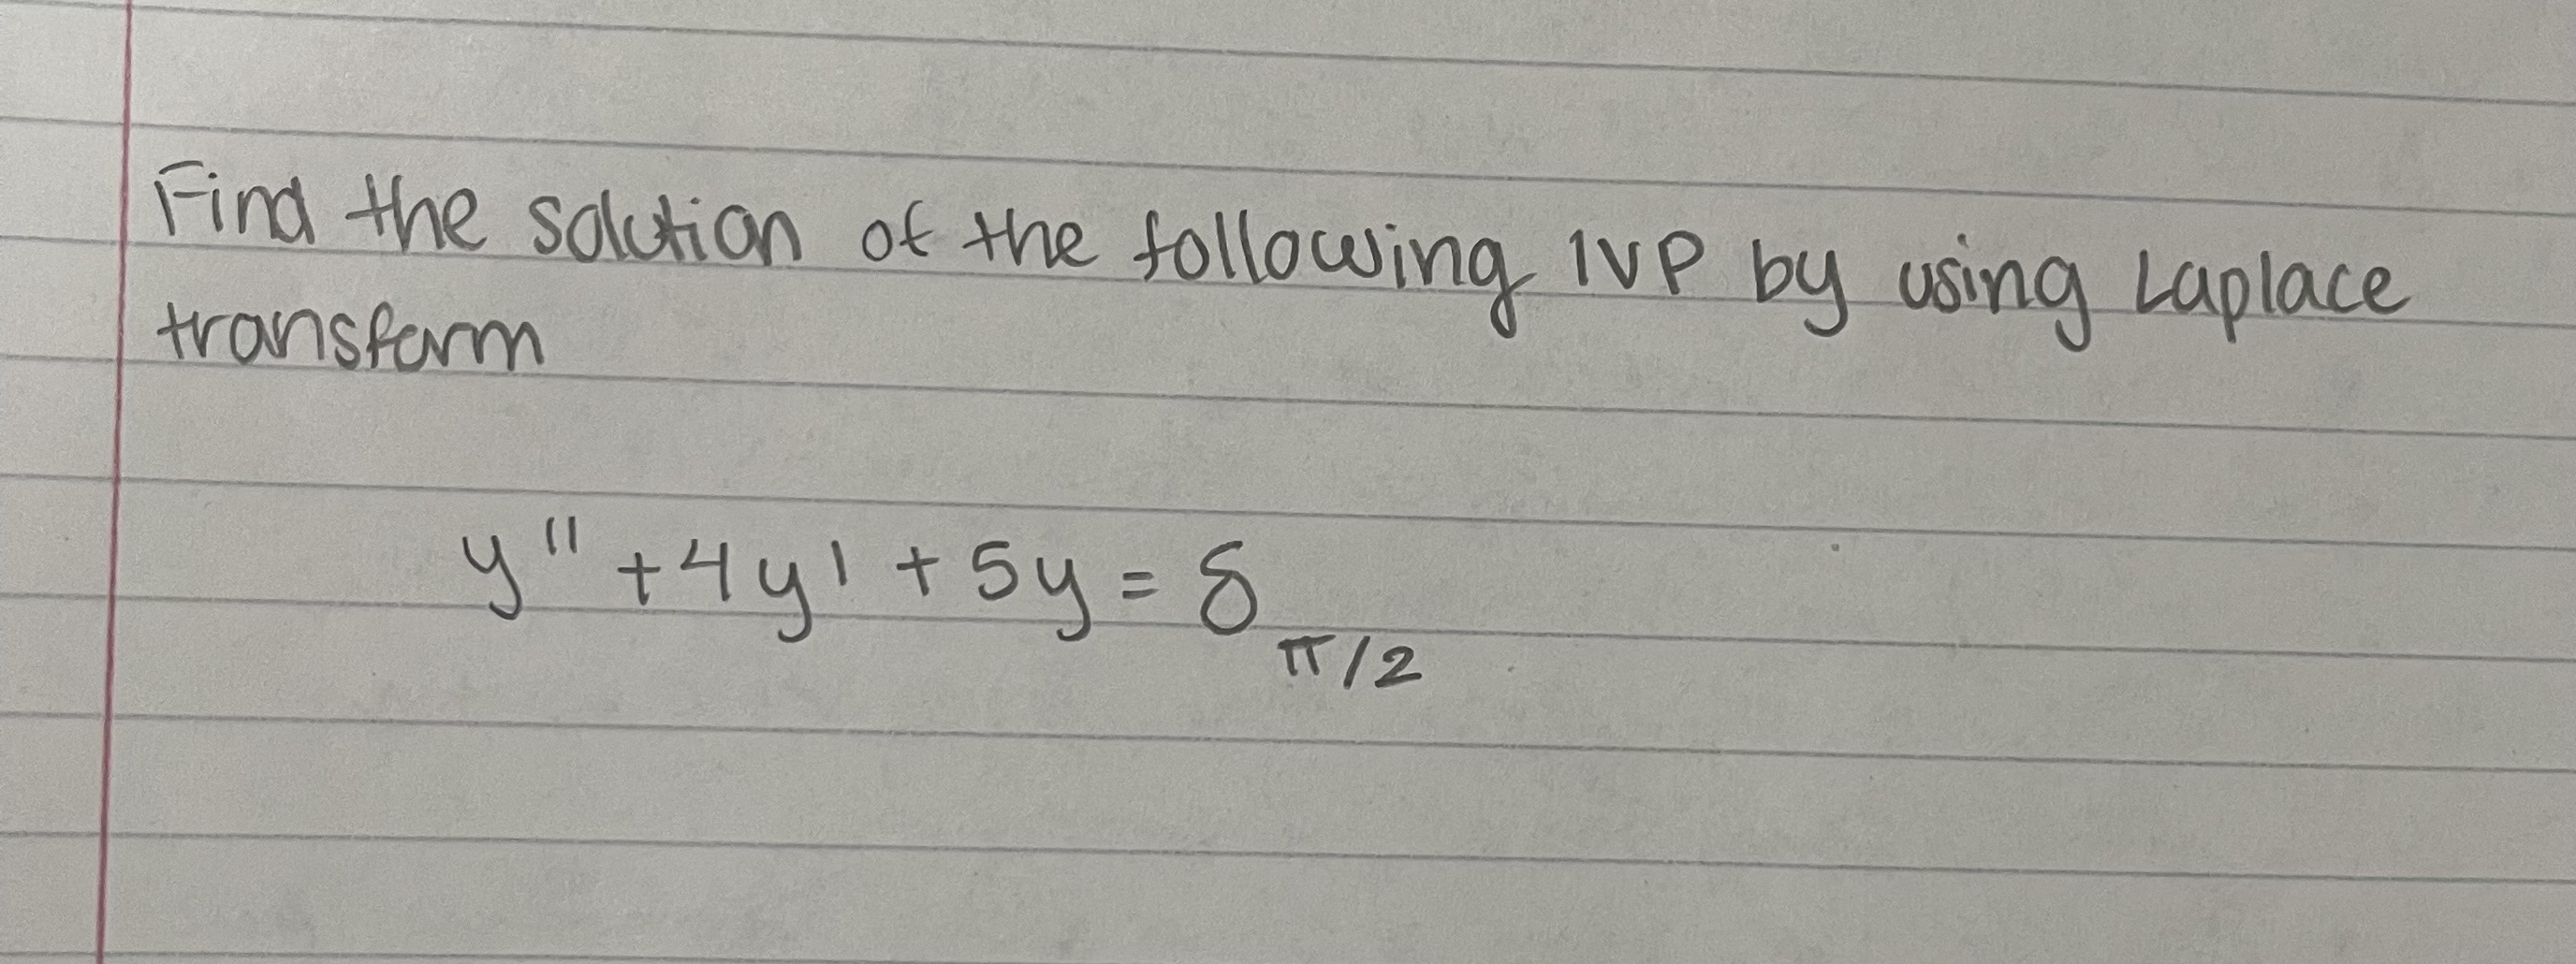 Find the solution of the following IVP by using Laplace
transform
y'' + 4y' + 5y = δ_π/2